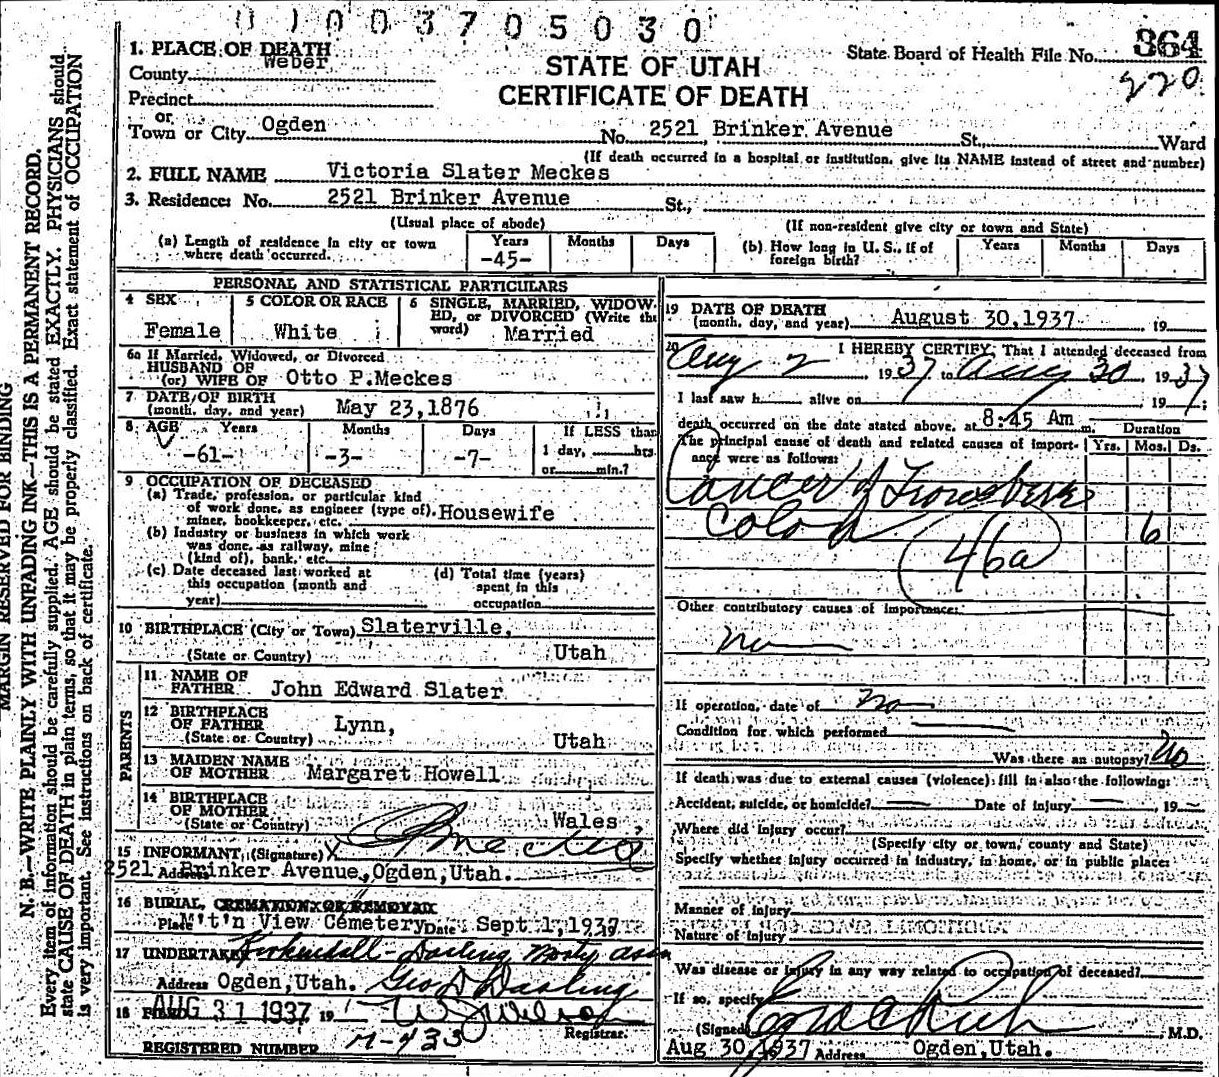 01003705030
1. PLACE OF DEATH
County Weber
Precinct
or
Town or City Ogden No. 2521 Brinker Avenue St., Ward
(If death occurred in a hospital or institution, give its NAME instead of street and number)
STATE OF UTAH
CERTIFICATE OF DEATH
State Board of Health File No. 364
220
2. FULL NAME Victoria Slater Meckes
3. Residence: No. 2521 Brinker Avenue St.,
(Usual place of abode) (If non-resident give city or town and State)
(a) Length of residence in city or town where death occurred. Years -45- Months Days
(b) How long in U. S., if of foreign birth? Years Months Days
PERSONAL AND STATISTICAL PARTICULARS
4 SEX Female
5 COLOR OR RACE White
6 SINGLE, MARRIED, WIDOW-
ED, or DIVORCED (Write the
word) Married
6a If Married, Widowed, or Divorced
HUSBAND OF
(or) WIFE OF Otto P.Meckes
7 DATE OF BIRTH
(month, day, and year) May 23,1876
8 AGE Years Months Days If LESS than
-61- -3- -7- 1 day, hrs.
or min.?
9 OCCUPATION OF DECEASED
(a) Trade, profession, or particular kind
of work done, as engineer (type of),
miner, bookkeeper, etc. Housewife
(b) Industry or business in which work
was done, as railway, mine
(kind of), bank, etc.
(c) Date deceased last worked at
this occupation (month and
year)
(d) Total time (years)
spent in this
occupation
10 BIRTHPLACE (City or Town) Slaterville,
(State or Country) Utah
PARENTS
11 NAME OF
FATHER John Edward Slater
12 BIRTHPLACE
OF FATHER Lynn,
(State or Country) Utah
13 MAIDEN NAME
OF MOTHER Margaret Howell
14 BIRTHPLACE
OF MOTHER
(State or Country) Wales,
15 INFORMANT, (Signature) X O P Meckes
Address 2521 Brinker Avenue,Ogden,Utah.
16 BURIAL, CREMATION OR REMOVAL
Place M't'n View Cemetery Date Sept.1,1937
17 UNDERTAKER Kirkendall-Darling Morty assn
Address Ogden,Utah. Geo D Darling
18 FILED AUG 31 1937 19 W J Wilson
Registrar.
REGISTERED NUMBER M-433
19 DATE OF DEATH
(month, day, and year) August 30,1937 19
20 I HEREBY CERTIFY, That I attended deceased from
Aug 2 1937 to Aug 30 1937
I last saw h alive on 19 ;
death occurred on the date stated above, at 8:45 Am m. Duration
The principal cause of death and related causes of import-
ance were as follows: Yrs. Mos. Ds.
Cancer of Transverse
Colon 6
(46a)
Other contributory causes of importance:
no
If operation, date of no
Condition for which performed
Was there an autopsy? No
If death was due to external causes (violence) fill in also the following:
Accident, suicide, or homicide? Date of injury 19
Where did injury occur?
(Specify city or town, county and State)
Specify whether injury occurred in industry, in home, or in public place:
Manner of Injury
Nature of Injury
Was disease or injury in any way related to occupation of deceased?
If so, specify
(Signed) M.D.
Aug 30, 1937 Address Ogden,Utah.
MARGIN RESERVED FOR BINDING
N. B.—WRITE PLAINLY WITH UNFADING INK—THIS IS A PERMANENT RECORD.
Every item of information should be carefully supplied. AGE should be stated EXACTLY. PHYSICIANS should
state CAUSE OF DEATH in plain terms, so that it may be properly classified. Exact statement of OCCUPATION
is very important. See instructions on back of certificate.